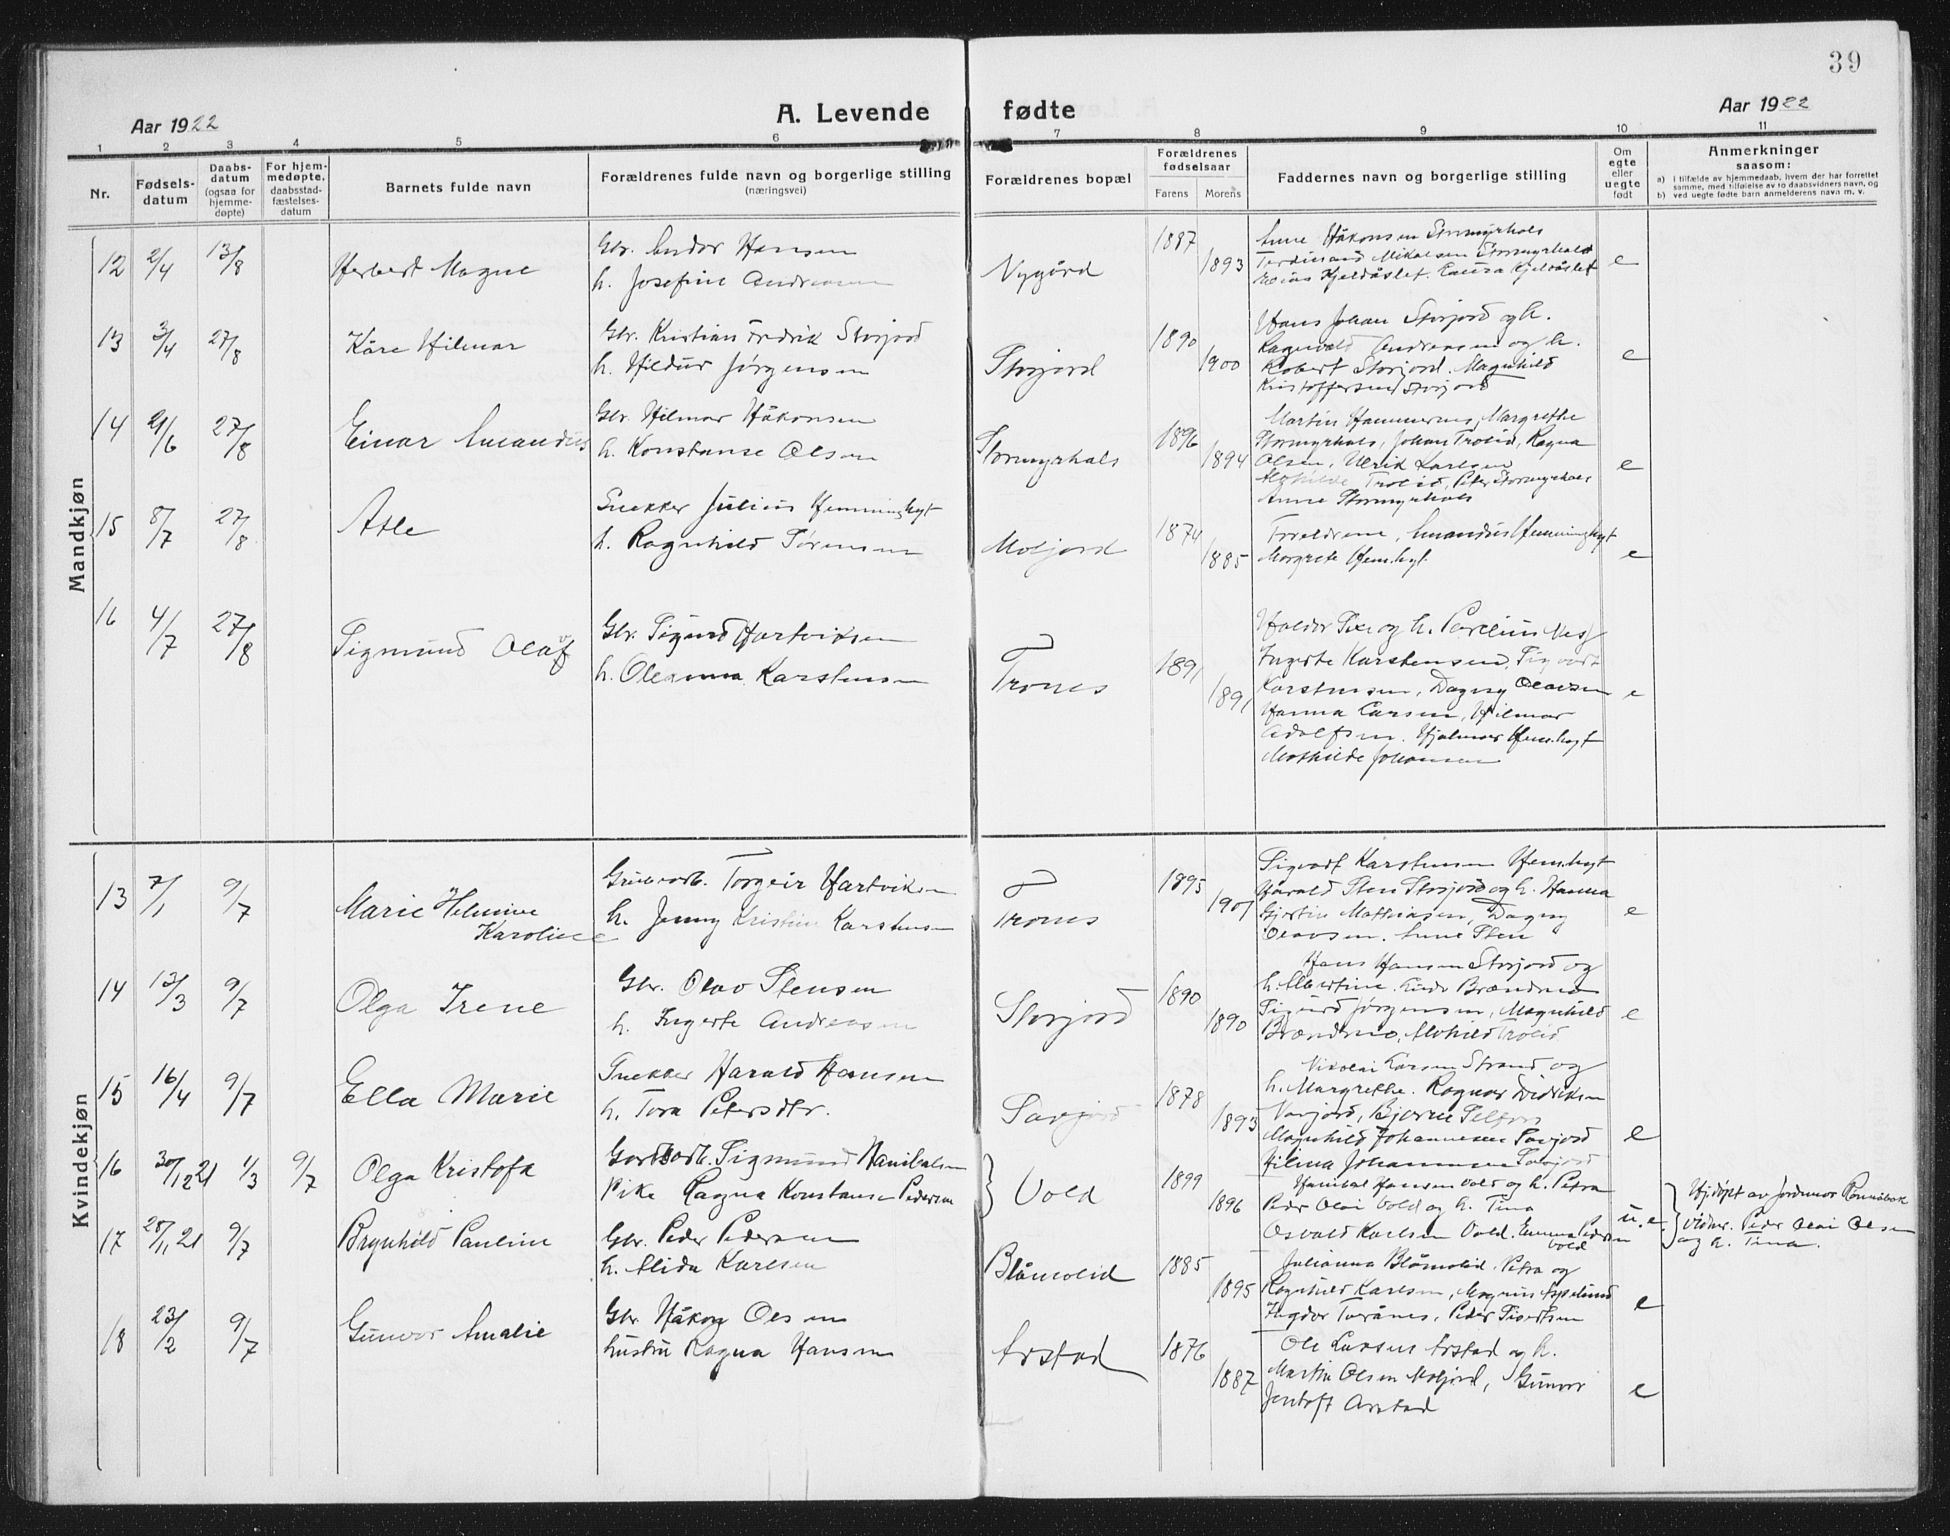 39
Aar 1922
A. Levende fødte
Aar 1922
1 2 3 4 5 6 7 8 9 10 11
Nr.
Fødsels-
datum
Daabs-
datum
(ogsaa for
hjemme-
døpte)
For hjem-
medøpte,
daabsstad-
fæstelses-
datum
Barnets fulde navn
Forældrenes fulde navn og borgerlige stilling
(næringsvei)
Forældrenes bopæl
Forældrenes
fødselsaar
Farens Morens
Faddernes navn og borgerlige stilling
Om
egte
eller
uegte
født
Anmerkninger
saasom:
a) i tilfælde av hjemmedaab, hvem der har forrettet
samme, med tilføielse av to daabsvidners navn, og
b) ved uegte fødte barn anmelderens navn m. v.
Mandkjøn
12 2/4 13/8 Herbert Magne
Gbr. Andor Hansen
h. Josefine Andreasen
Nygård 1887 1893
Anne Håkonsen Stormyrhals
Ferdinand Mikalsen Stormyrhals
Kjeldåslet. Laura Kjeldåslet
e
13 3/4 27/8 Kåre Hilmar
Gbr. Kristian Fredrik Storjord
h. Hildur Jørgensen
Storjord 1890 1900
Hans Johan Storjord og h.
Ragnvald Andreasen og h.
Robert Storjord. Magnhild
Kristoffersen Storjord
e
14 21/6 27/8 Einar Amandus
Gbr. Hilmar Håkonsen
h. Konstanse Olsen
Stormyrhals 1896 1894
Martin Hammernes, Margrethe
Stormyrhals, Johan Trolid, Ragna
Olsen, Ulrik Karlsen
Trolid, Peter Stormyrhals
Anna Stormyrhals
e
15 8/7 27/8 Atle
Snekker Julius Hemminghyt
h. Ragnhild Sørensen
Moljord 1874 1885
Foreldrene, Amandus Hemminghyt
Margrete Hem.hyt.
e
16 4/7 27/8 Sigmund Olaf
Gbr. Sigurd Hartviksen
h. Oleanna Karstensen
Trones 1891 1891
Haldor og h. Parelius Nes
Ingerte Karstensen, Sigvart
Karstensen, Dagny Olavsen
Hanna Larsen, Hilmar
Adolfsen. Hjalmar Hem.hyt
Mathilde Johansen
e
Kvindekjøn
13 7/1 9/7 Marie Helmine
Karoline
Grubearb. Torgeir Hartviksen
h. Jenny Kristine Karstensen
Trones 1895 1901
Sigvart Karstensen Hem.hyt
Harald Sten Storjord og h. Hanna
Gjertine Mathiasen, Dagny
Olavsen. Anne Sten
e
14 12/3 9/7 Olga Irene
Gbr. Olav Stensen
h. Ingerte Andreasen
Storjord 1890 1890
Hans Hansen Storjord og
h. Albertine. Brændmo
Sigurd Jørgensen, Magnhild
Brændmo, Trolid
e
15 16/4 9/7 Ella Marie
Snekker Harald Hansen
h. Tora Petersdtr.
Savjord 1878 1893
Nikolai Larsen Strand og
h. Margrethe. Ragnar Didriksen
Savjord, Bjarne
Magnhild Johannesen Savjord
Hilma Johannesen Savjord
e
16 30/12 21 1/3 9/7 Olga Kristofa
Sigmund Hanibalsen
Pike Ragna Konstanse Pedersen
Vold 1899 1896
Hanibal Hansen Vold og h. Petra
Peder Olai Vold og h. Tina
Osvald Karlsen Vold. Emma Pedersen
Vold
u.e.
Hj.døpt av Jordmor
vidner. Peder Olai Olsen
og h. Tina.
17 28/11 21 9/7 Brynhild Pauline
Gbr. Peder Pedersen
h. Alida Karlsen
Blåmolid 1885 1895
Julianna Blåmolid. Petra og
Ragnhild Karlsen, Magnus
Ingdor Toranes, Peder Sivertsen
e
18 23/2 9/7 Gunvor Amalie
Gbr. Håkon Olsen
hustru Ragna Hansen
Arstad 1876 1887
Ole Larsen Arstad og h.
Martin Olsen Moljord, Gunvor
Jentoft Arstad
e